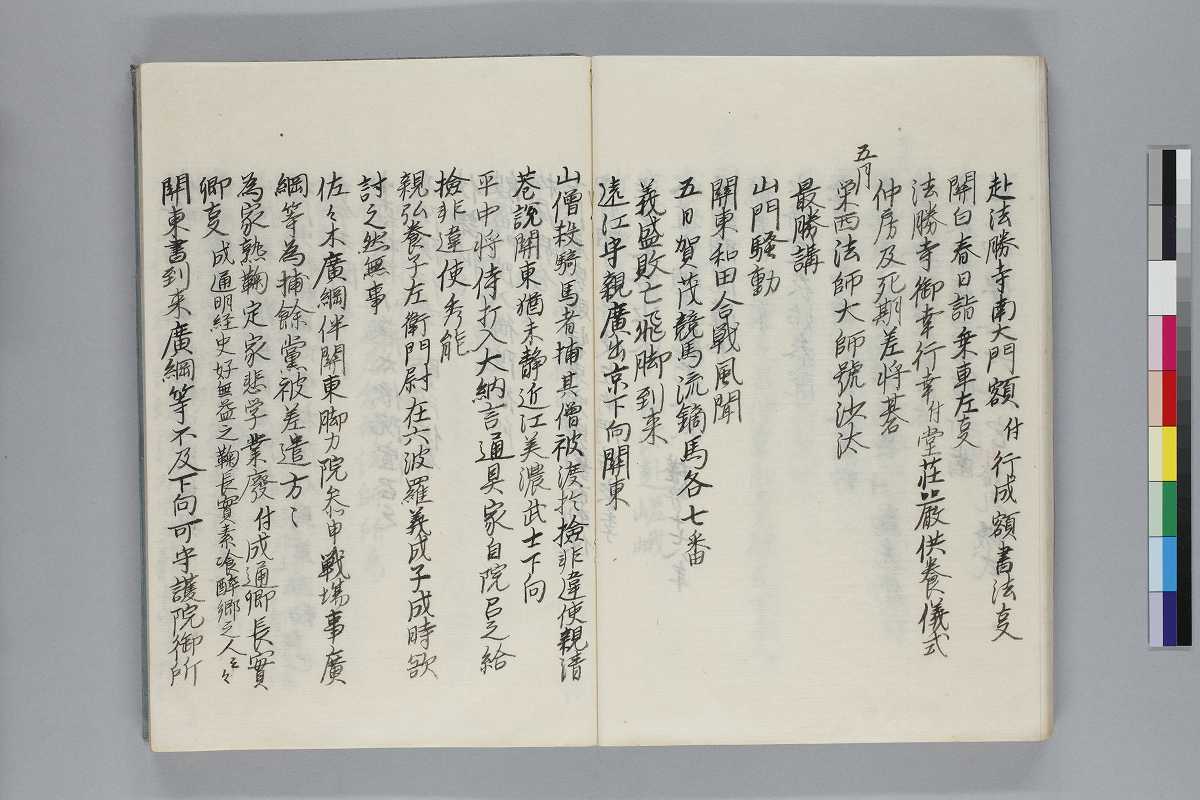 赴法勝寺南大門額 付行成額書法叓
関白春日詣乗車左叓
法勝寺御幸行幸付堂荘厳供養儀式
仲房及死期差将碁
五月
栄西法師大師號沙汰
最勝講
山門騒動
関東和田合戦風聞
五日賀茂競馬流鏑馬各七番
義盛敗亡飛脚到来
遠江守親廣出京下向関東
山僧殺騎馬者捕其僧被渡於撿非違使親清
巷説関東猶未静近江美濃武士下向
平中将侍打入大納言通具家自院召之給
撿非違使秀能
親弘養子左衛門尉在六波羅義成子成時欲
討之然無事
佐々木廣綱伴関東脚力院参申戦場事廣
綱等為捕餘黨被差遣方〻
為家熟鞠定家悲学業廢 付成通卿長實
卿叓 成通明経史好無益之鞠長實素飡酔郷之人云々
関東書到来廣綱等不及下向可守護院御所